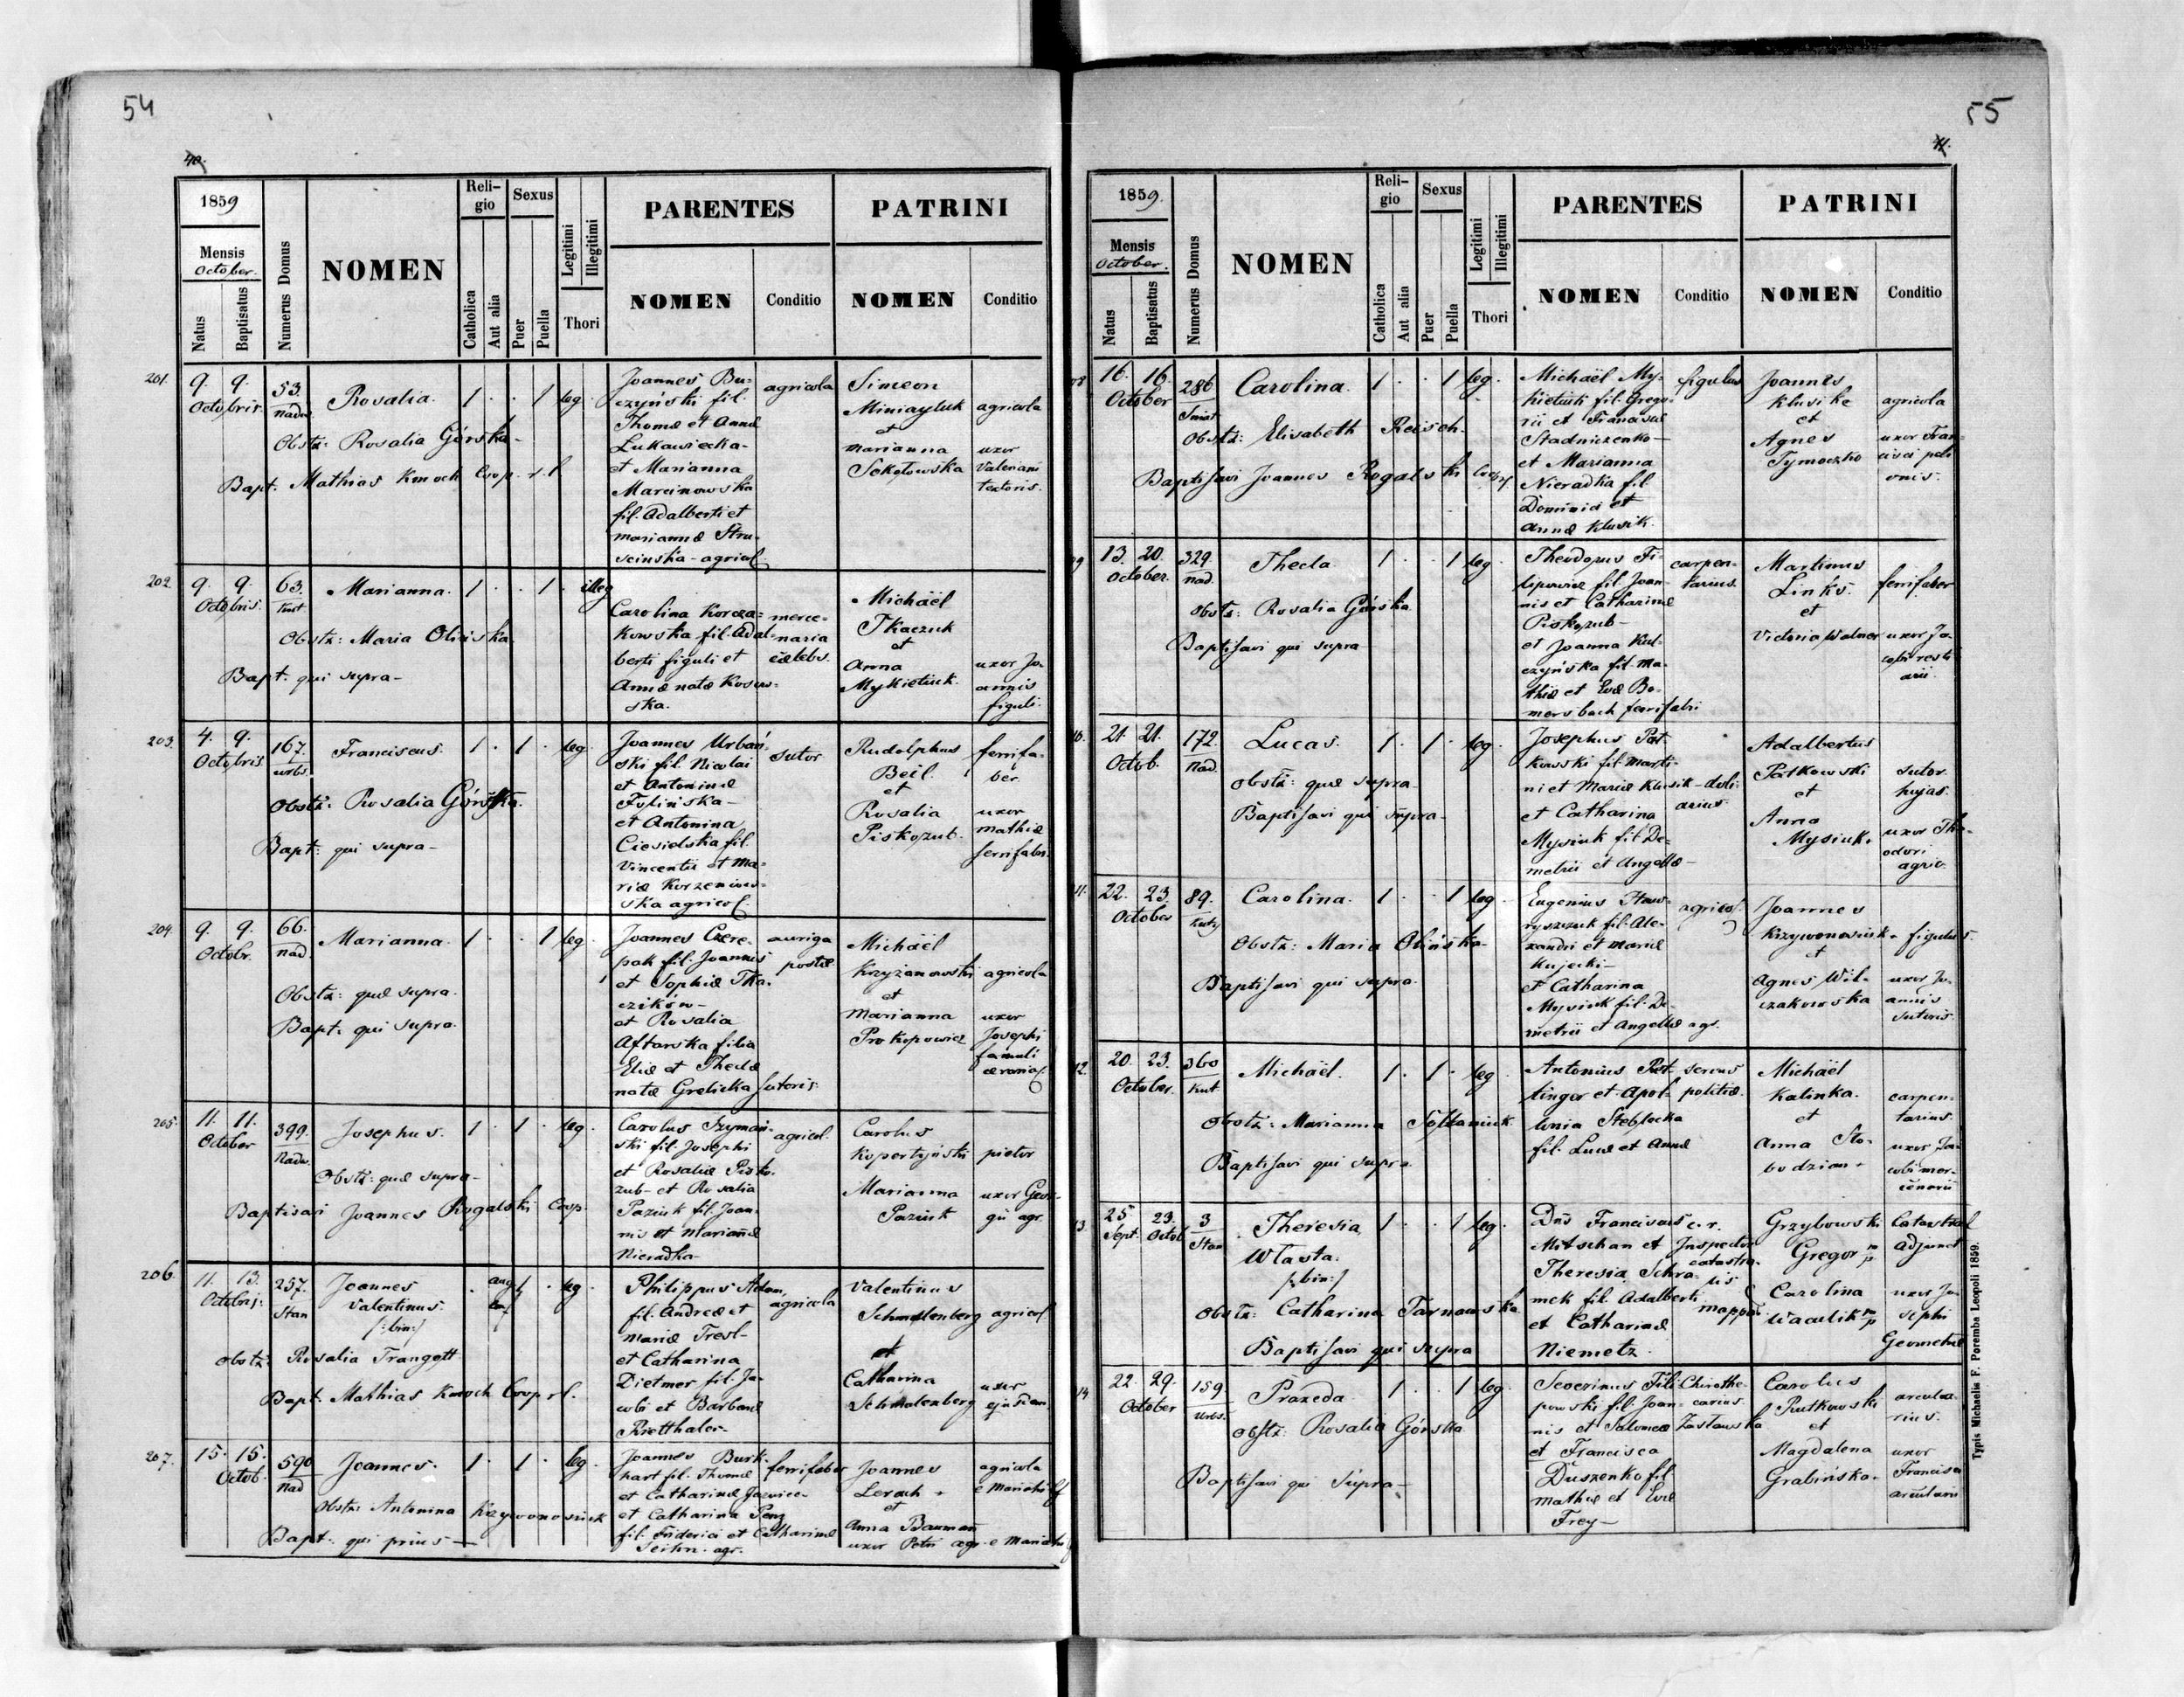 54
40.
1859
Mensis
October.
Natus
Baptisatus
Numerus Domus
NOMEN
Reli-
gio
Catholica
Aut alia
Sexus
Puer
Puella
Legitimi
Illegitimi
Thori
PARENTES
NOMEN
Conditio
PATRINI
NOMEN
Conditio
201.
9. 9.
Octobris.
53.
Rosalia.
1 . . 1 leg.
Obstx: Rosalia Górska-
Bapt. Mathias Kmoch Coop. r. l
Joannes Bu-
czyński fil.
Thomæ et Annæ
Lukawiecka-
et Marianna
Marcinowska
fil. Adalberti et
Mariannæ Stru-
scinska - agricol.
agricola
Simeon
et
Marianna
Sokołowska
agricola
uxor
Valeriani
textoris.
202.
9. 9.
Octobris.
63.
Kut
Marianna.
1 . . 1 . illeg
Obstx: Maria Olinska
Bapt. qui supra-
Carolina Korcza-
kowska fil. Adal-
berti figuli et
Annæ natæ Kosow-
ska.
merce-
naria
cælebs.
Michaël
Tkaczuk
et
Anna
Mykietiuk.
uxor Jo-
annis
figuli.
203.
4. 9.
Octobris.
167.
urbs.
Franciscus.
1 . 1 . leg.
Obstx: Rosalia Górska.
Bapt: qui supra-
Joannes Urbań-
ski fil. Nicolai
et Antoninæ
et Antonina
Ciesielska fil.
Vincentii et Ma-
riæ Korzeniow-
ska agricol.
sutor
Rudolphus
Beil.
et
Rosalia
Piskozub.
ferrifa-
ber.
uxor
Mathiæ
ferrifabri.
204.
9. 9.
Octobr.
66.
nad.
Marianna.
1 . . 1 leg.
Obstx: quæ supra.
Bapt. qui supra.
Joannes Czere-
pak fil. Joannis
et Sophiæ Tka-
czików-
et Rosalia
Aftarska filia
Eliæ et Theclæ
natæ Grelicka sutoris.
auriga
postæ
Michaël
Krzyżanowski
et
Marianna
Prokopowicz
agricola
uxor
Josephi
famuli
205.
11. 11.
October
399.
Nadw.
Josephus.
1 . 1 . leg.
Obstx: quæ supra-
Baptisavi Joannes Rogalski Coop.
Carolus Szymań-
ski fil. Josephi
et Rosaliæ Pisko-
zub- et Rosalia
Paziuk fil. Joan-
nis et Mariannæ
Nieradka
agricol.
Carolus
Kopertyński
Marianna
Paziuk
pictor
uxor Geor-
gii agr.
206.
11. 13.
Octobris:
257.
Stan
Joannes
Valentinus.
/:bin:/
leg
obstx: Rosalia Trangott
Bapt. Mathias Kmoch Coop r l.
Philippus Adam,
fil. Andreæ et
Mariæ Tresl-
et Catharina
Dietmer fil. Ja-
cobi et Barbaræ
Kretthaler-
agricola
Valentinus
Schmalenberg
et
Catharina
Schmalenberg
agricol
uxor
ejusdem.
207.
15. 15.
Octob.
590
nad
Joannes.
1 . 1 . leg.
Obstx: Antonina Krzywonosiuk
Bapt. qui prius-
Joannes Burk-
hart fil. Thomæ
et Catharinæ
et Catharina Penz
fil. Friderici et Catharinæ
agr.
ferrifaber
Joannes
Lerach
et
Anna Bauman
uxor Petri agr. e Mariahilf
agricola
e Mariahilf
55
41.
1859.
Mensis
October.
Natus
Baptisatus
Numerus Domus
NOMEN
Reli-
gio
Catholica
Aut alia
Sexus
Puer
Puella
Legitimi
Illegitimi
Thori
PARENTES
NOMEN
Conditio
PATRINI
NOMEN
Conditio
16. 16.
October
286
Carolina.
1 . . 1 leg.
Obstx: Elisabeth Reisch.
Baptisavi Joannes Rogalski Coop.
Michaël My-
kietiuk fil. Grego-
rii et Franciscæ
Stadniczenko-
et Marianna
Nieradka fil.
Dominici et
Annæ Klusik.
figulus
Joannes
Klusik
et
Agnes
Tymoczko
agricola
uxor Fran-
cisci peli
onis.
13. 20.
October.
329.
nad.
Thecla
1 . . 1 leg
Obstx: Rosalia Górska
Baptisavi qui supra
Theodorus Fi-
lipowicz fil. Joan-
nis et Catharinæ
Piskozub-
et Joanna Kul-
czyńska fil. Ma-
thiæ et Evæ Bo-
mersbach ferrifabri
carpen-
tarius.
Martinus
Links.
et
Victoria Walner
ferrifaber
uxor Ja-
cobi resti
arii.
21. 21.
Octob.
172.
Nad.
Lucas.
1 . 1 . leg.
Obstx: quæ supra-
Baptisavi qui supra-
Josephus Pat-
kowski fil. Marti-
ni et Mariæ Klusik-
et Catharina
Mysiuk fil. De-
metrii et Angellæ-
doli-
arius.
Adalbertus
Patkowski
et
Anna
Mysiuk.
sutor.
hujas.
uxor The-
odori
agric.
22. 23.
October
89.
Kuty
Carolina.
1 . . 1 leg.
Obstx: Maria Olińska-
Baptisavi qui supra.
Eugenius Haw-
ryszczuk fil. Ale-
xandri et Mariæ
Kujecki-
et Catharina
Mysiuk fil. De-
metrii et Angellæ agr.
agricol.
Joannes
Krzywonosiuk.
et
Agnes Wil-
czakowska
figulus.
uxor Jo-
annis
sutoris.
20. 23.
October.
360
Kut
Michaël.
1 . 1 . leg.
Obstx: Marianna Sołtaniuk
Baptisavi qui supra.
Antonius Pet-
linger et Apol-
lonia Steblecka
fil. Lucæ et Annæ
servus
politiæ.
Michaël
Kalinka.
et
Anna Sło-
bodzian.
carpen-
tarius.
uxor Ja-
cobi mer-
cenarii
25 23.
Sept. Octob.
3
Stan
Theresia,
Wlasta.
/:bin:/
1 . . 1 leg.
Obstx: Catharina Tarnawska
Baptisavi qui supra
Dnus Franciscus
Motschan et
Theresia Schra-
mek fil. Adalberti
et Cathariæ
Niemetz.
c. r.
Inspector
catastra-
lis
mappar.
Grzybowski
Gregor mp
Carolina
Waculik mp
Catastral
adjunct
uxor Jo-
sephi
Geometræ
22. 29.
October
159.
urbs.
Praxeda.
1 . . 1 leg.
Obstx: Rosalia Górska
Baptisavi qui supra-
Severinus Fili-
powski fil. Joan-
nis et Salomeæ Zasławska
et Francisca
Duszenko fil
Mathiæ et Evæ
Frey-
Chirothe-
carius.
Carolus
Rutkowski
et
Magdalena
Grabińska.
arcula-
rius.
uxor
Francisci
arcularii
Typis Michaelis F. Poremba Leopoli 1859.